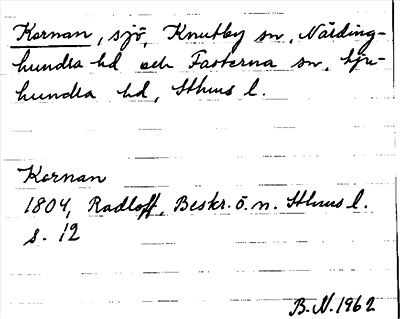 Kornan, sjö, Knutby sn, Närding-
hundra hd och Fasterna sn, Sju-
hundra hd, Sthms l.
Kornan
1804, Radloff, Beskr. ö. n. Sthms l.
s. 12
B.N. 1962